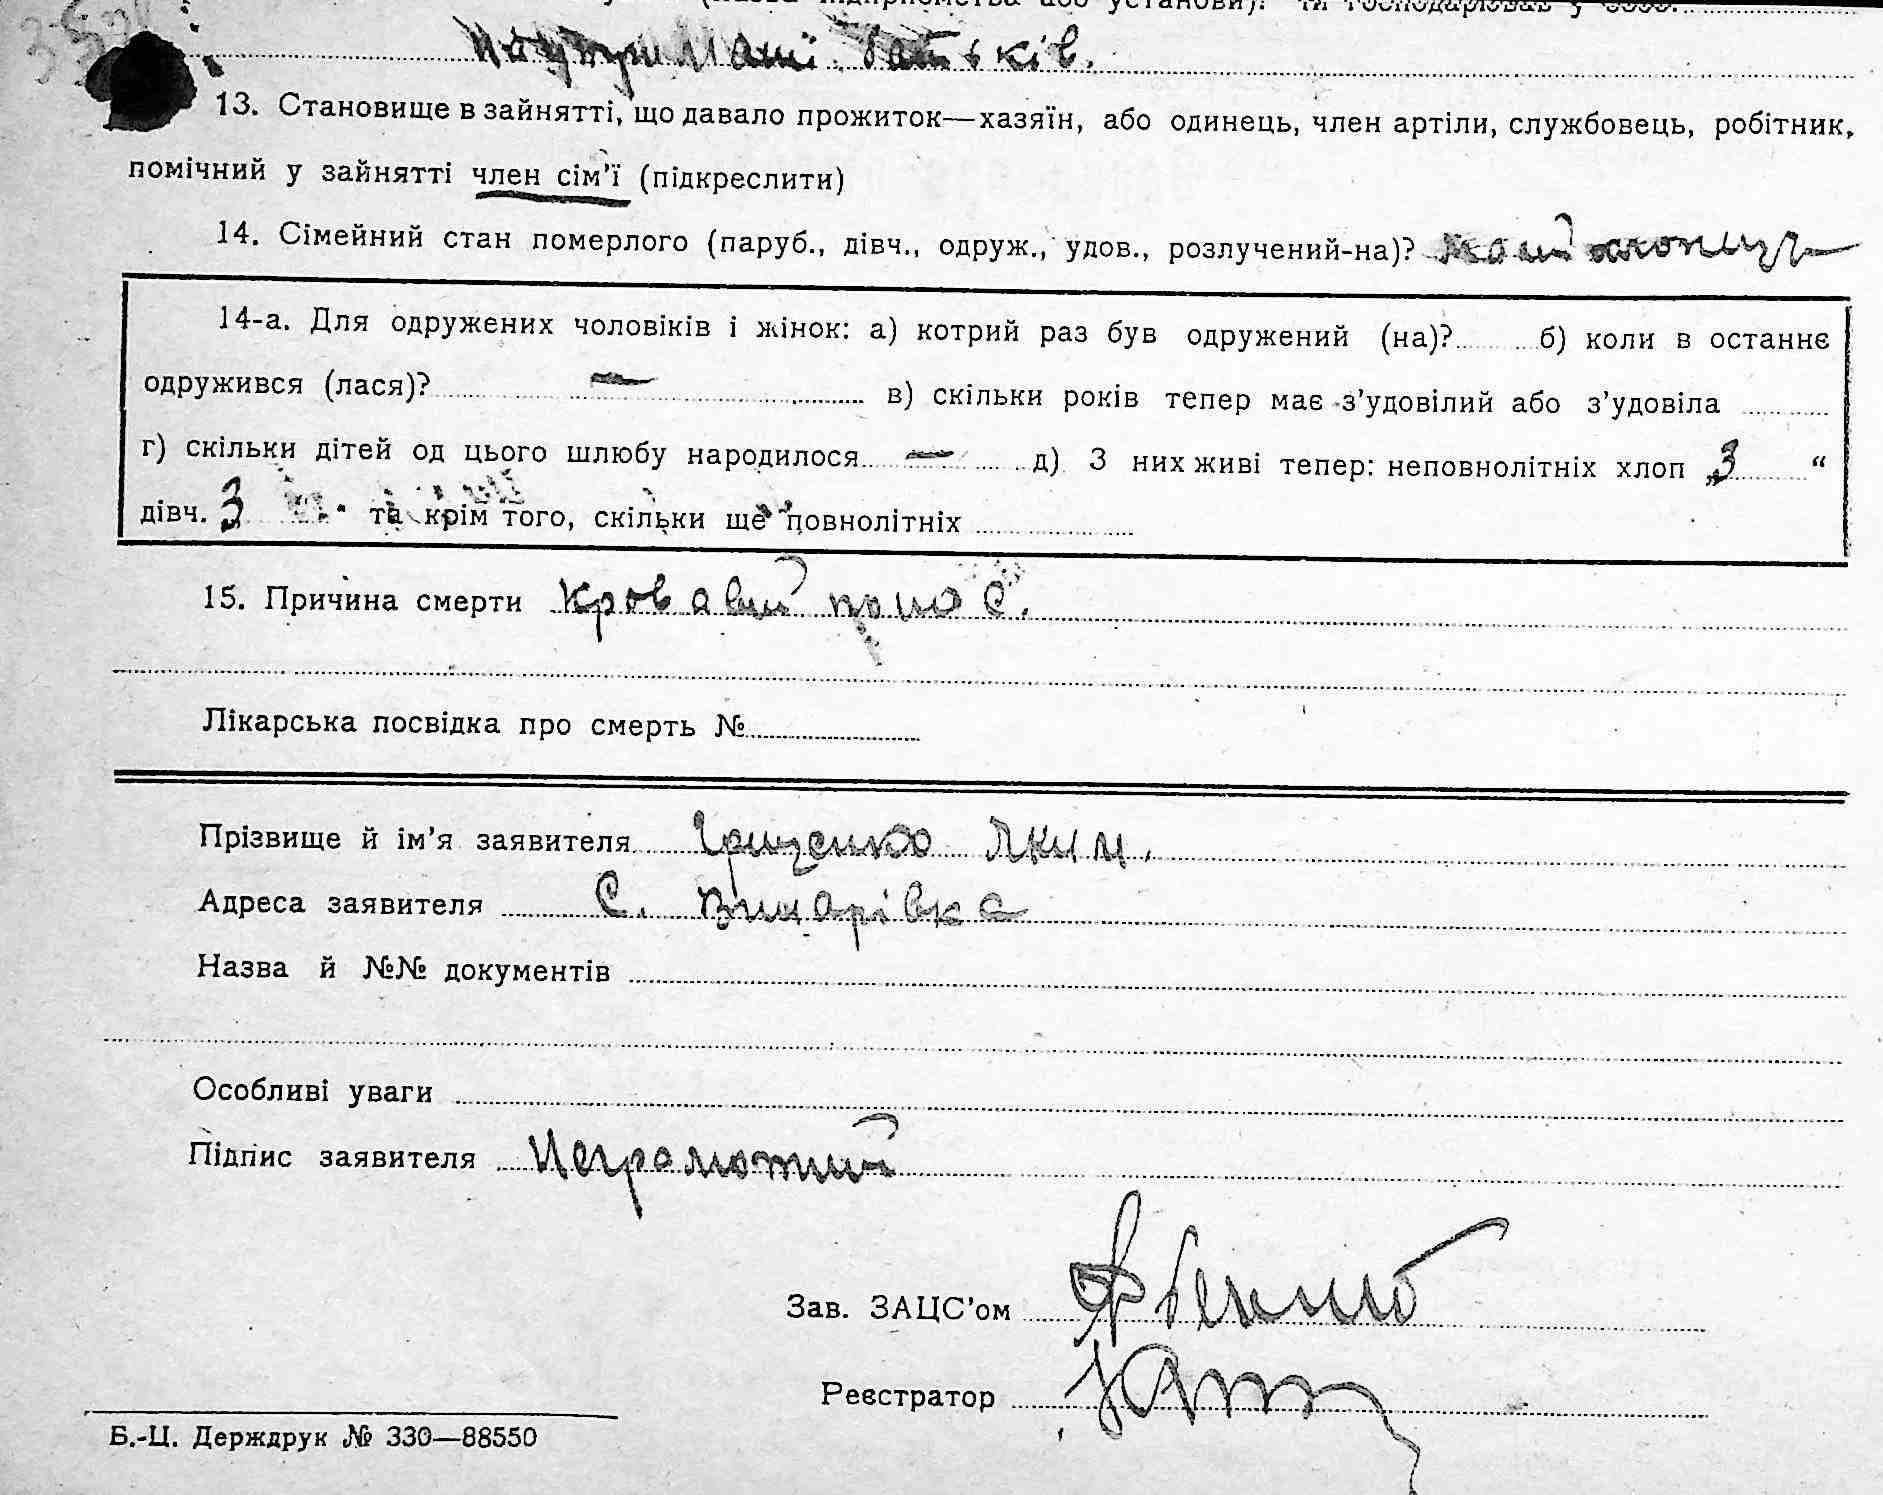 На утриманні батьків.
13. Становище в зайнятті, що давало прожиток—хазяїн, або одинець, член артіли, службовець, робітник,
помічний у зайнятті член сім'ї (підкреслити)
14. Сімейний стан померлого (паруб., дівч., одруж., удов., розлучений-на)?
14-а. Для одружених чоловіків і жінок: а) котрий раз був одружений (на)? б) коли в останнє
одружився (лася)? — в) скільки років тепер має з'удовілий або з'удовіла
г) скільки дітей од цього шлюбу народилося — д) З них живі тепер: неповнолітніх хлоп „3 “
дівч. 3 та крім того, скільки ще повнолітніх
15. Причина смерти Кровавий понос.
Лікарська посвідка про смерть №
Прізвище й ім'я заявителя Грищенко Яким.
Адреса заявителя С. Винарівка
Назва й №№ документів
Особливі уваги
Підпис заявителя Неграмотний
Зав. ЗАЦС'ом
Реєстратор
Б.-Ц. Держдрук № 330—88550